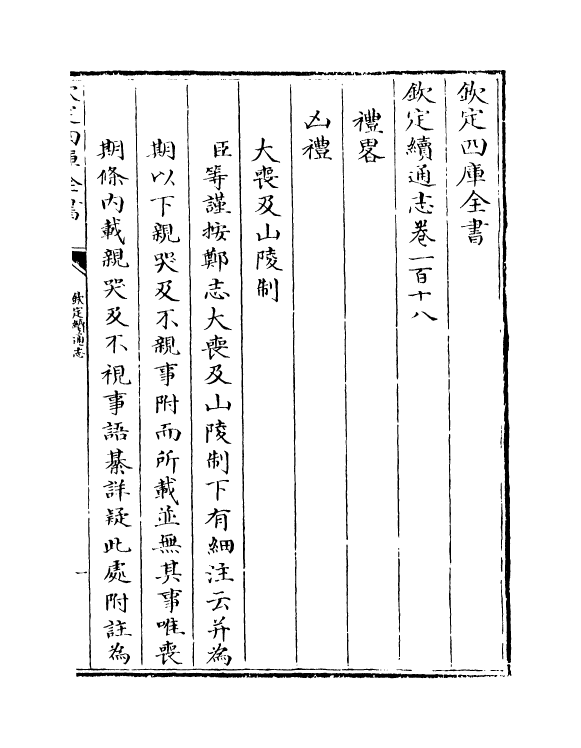 欽定四庫全書
欽定續通志卷一百十八
禮畧
凶禮
大喪及山陵制
臣等謹按鄭志大喪及山陵制下有細注云并為
期以下親哭及不親事附而所載並無其事唯喪
期條内載親哭及不視事語綦詳疑此處附註為
欽定四庫全書
欽定續通志
一